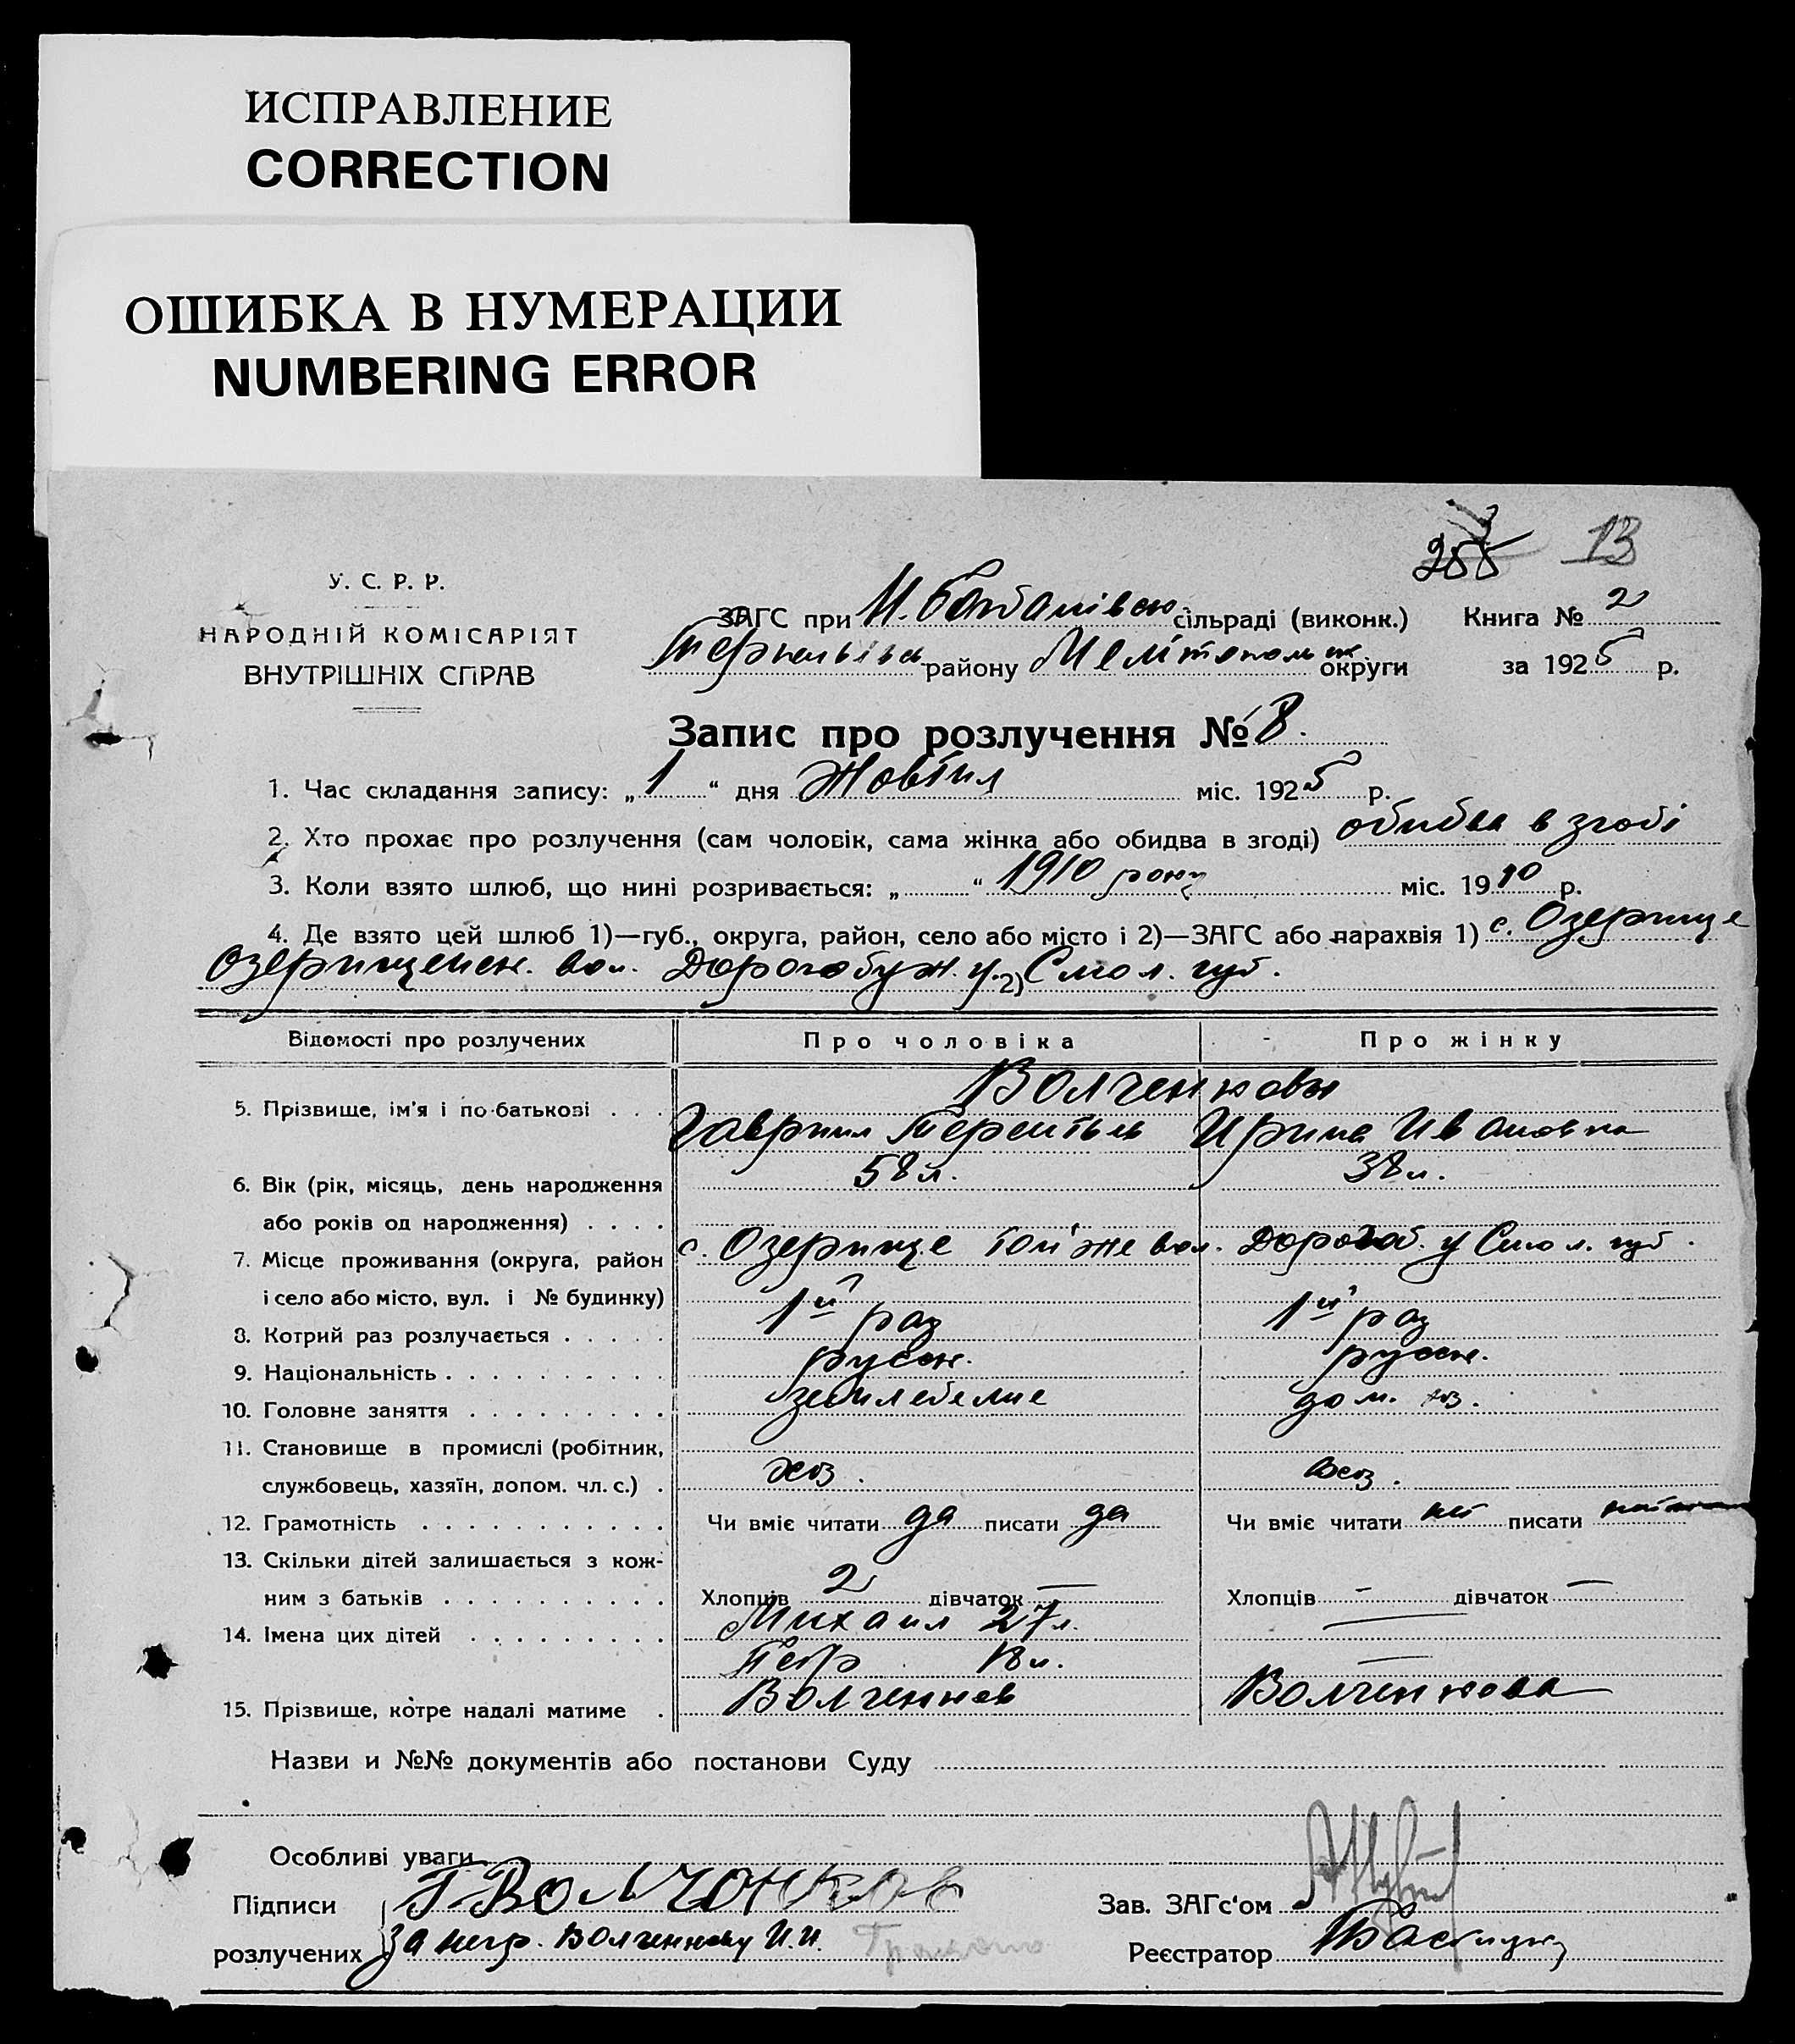 ИСПРАВЛЕНИЕ
CORRECTION
ОШИБКА В НУМЕРАЦИИ
NUMBERING ERROR
13
У. С. Р. Р.
НАРОДНІЙ КОМІСАРІЯТ
ВНУТРІШНІХ СПРАВ
ЗАГС при Н. Богданівск. сільраді (виконк.) Книга № 2
району Мелітопольск. округи за 1925 р.
Запис про розлучення № 8.
1. Час складання запису: „ 1 “ дня Жовтня міс. 1925 р.
2. Хто прохає про розлучення (сам чоловік, сама жінка або обидва в згоді) обидва в згоді
3. Коли взято шлюб, що нині розривається: „ “ 1910 року міс. 1910 р.
4. Де взято цей шлюб 1)—губ., округа, район, село або місто і 2)—ЗАГС або парахвія 1) с. Озерище
Озерищенск. вол. Дорогобуж. у. 2) Смол. губ.
Відомості про розлучених Про чоловіка Про жінку
Волченковы
5. Прізвище, ім'я і по-батькові . . . Гавриил Терентьев Ирина Ивановна
6. Вік (рік, місяць, день народження 58 л. 38 л.
або років од народження) . . . .
7. Місце проживання (округа, район с. Озерище той же вол. Дорогоб. у Смол. губ.
і село або місто, вул. і № будинку)
8. Котрий раз розлучається . . . . . 1й раз 1й раз
9. Національність . . . . . . . . . . русск. русск.
10. Головне заняття . . . . . . . . . земледелие дом. хоз.
11. Становище в промислі (робітник,
службовець, хазяїн, допом. чл. с.) . хоз.
12. Грамотність . . . . . . . . . . . Чи вміє читати да писати да Чи вміє читати нет писати
13. Скільки дітей залишається з кож-
ним з батьків . . . . . . . . . . Хлопців 2 дівчаток — Хлопців — дівчаток —
14. Імена цих дітей . . . . . . . . . Михаил 27 л. —
Петр 18 л. —
15. Прізвище, котре надалі матиме . Волченков Волченкова
Назви и №№ документів або постанови Суду
Особливі уваги
Підписи Г. Волчонков Зав. ЗАГс'ом
розлучених За негр. Волченкову И. И. Реєстратор